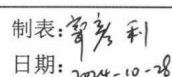 制表:郭彦利
日期:2024-10-28